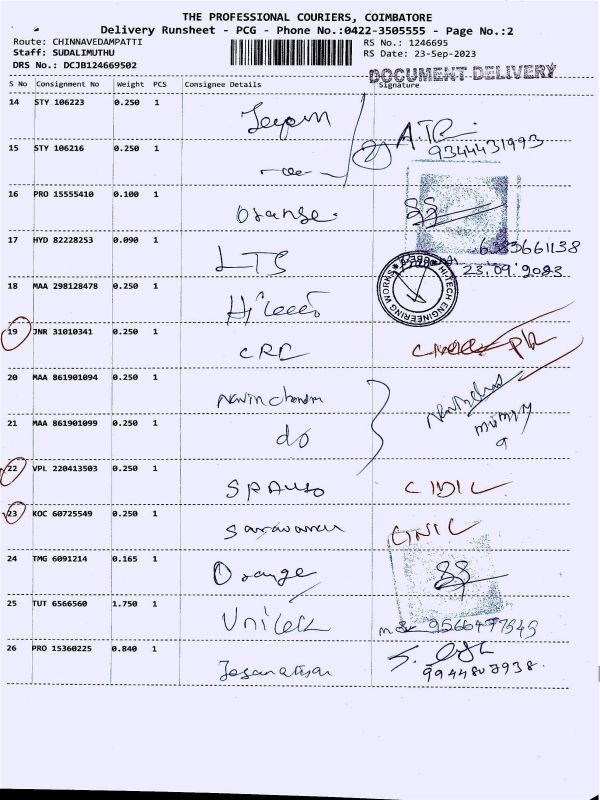 THE PROFESSIONAL COURIERS, COIMBATORE
Delivery Runsheet - PCG - Phone No.:0422-3505555 - Page No.:2
Route: CHINNAVEDAMPATTI
RS No.: 1246695
Staff: SUDALIMUTHU
RS Date: 23-Sep-2023
DRS No.: DCJB124669502
DOCUMENT DELIVERY
S No Consignment No Weight PCS Consignee Details Signature
14 STY 106223 0.250 1
15 STY 106216 0.250 1
9344431993
16 PRO 15555410 0.100 1 Orange.
17 HYD 82228253 0.090 1 LTS
6383661138
23.09.2023
HITECH ENGINEERING WORKS
18 MAA 298128478 0.250 1
19 JNR 31010341 0.250 1 CRC
20 MAA 861901094 0.250 1 Navin chandra
21 MAA 861901099 0.250 1 do
22 VPL 220413503 0.250 1 SP Auto
23 KOC 60725549 0.250 1 Saravanan
24 TMG 6091214 0.165 1 Orange
25 TUT 6566560 1.750 1 Unitech
9566477343
26 PRO 15360225 0.840 1
9944807938.